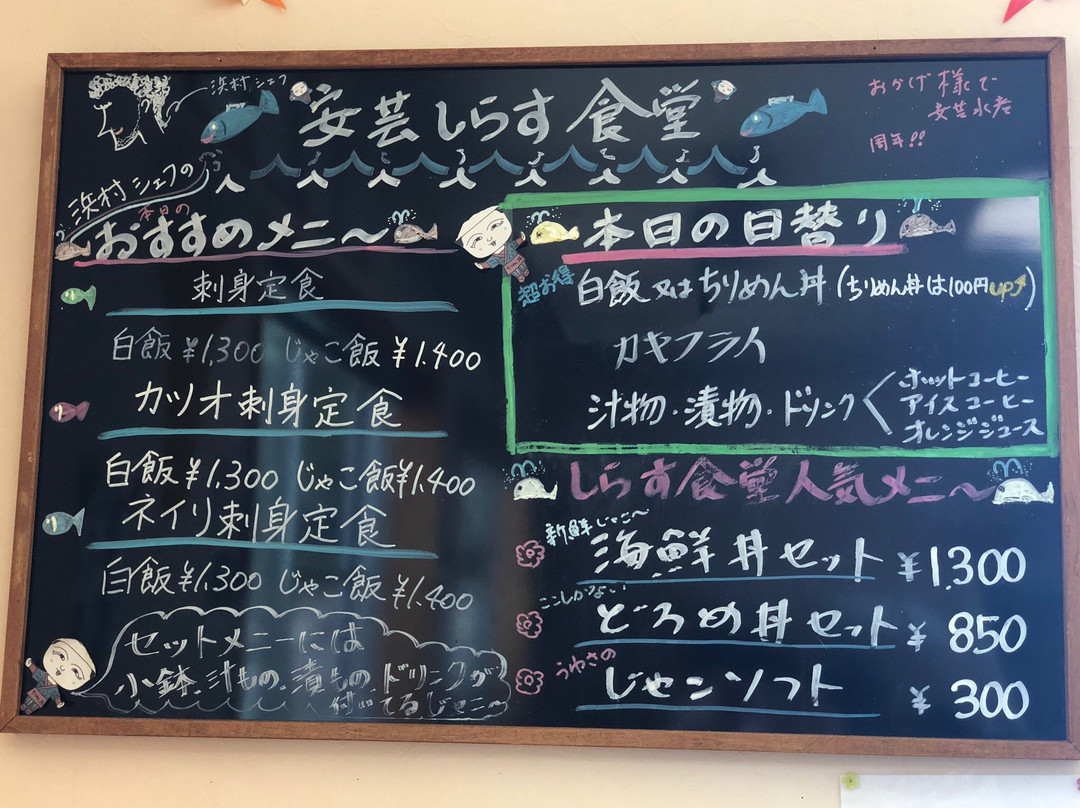 浜村シェフ
安芸しらす食堂
おかげ様で
安芸水産
周年!!
浜村シェフの
本日の
おすすめメニ〜
刺身定食
白飯¥1,300 じゃこ飯¥1,400
カツオ刺身定食
白飯¥1,300 じゃこ飯¥1,400
ネイリ刺身定食
白飯¥1,300 じゃこ飯¥1,400
セットメニーには
小鉢、汁もの、漬もの、ドリンクが
付いてるじゃこ〜
本日の日替り
超お得
白飯又はちりめん丼(ちりめん丼は100円up↑)
カキフライ
汁物・漬物・ドリンク
ホットコーヒー
アイスコーヒー
オレンジジュース
しらす食堂人気メニ〜
新鮮じゃこ〜
海鮮丼セット ¥1,300
ここしかない
どろめ丼セット ¥850
うわさの
じゃこソフト ¥300